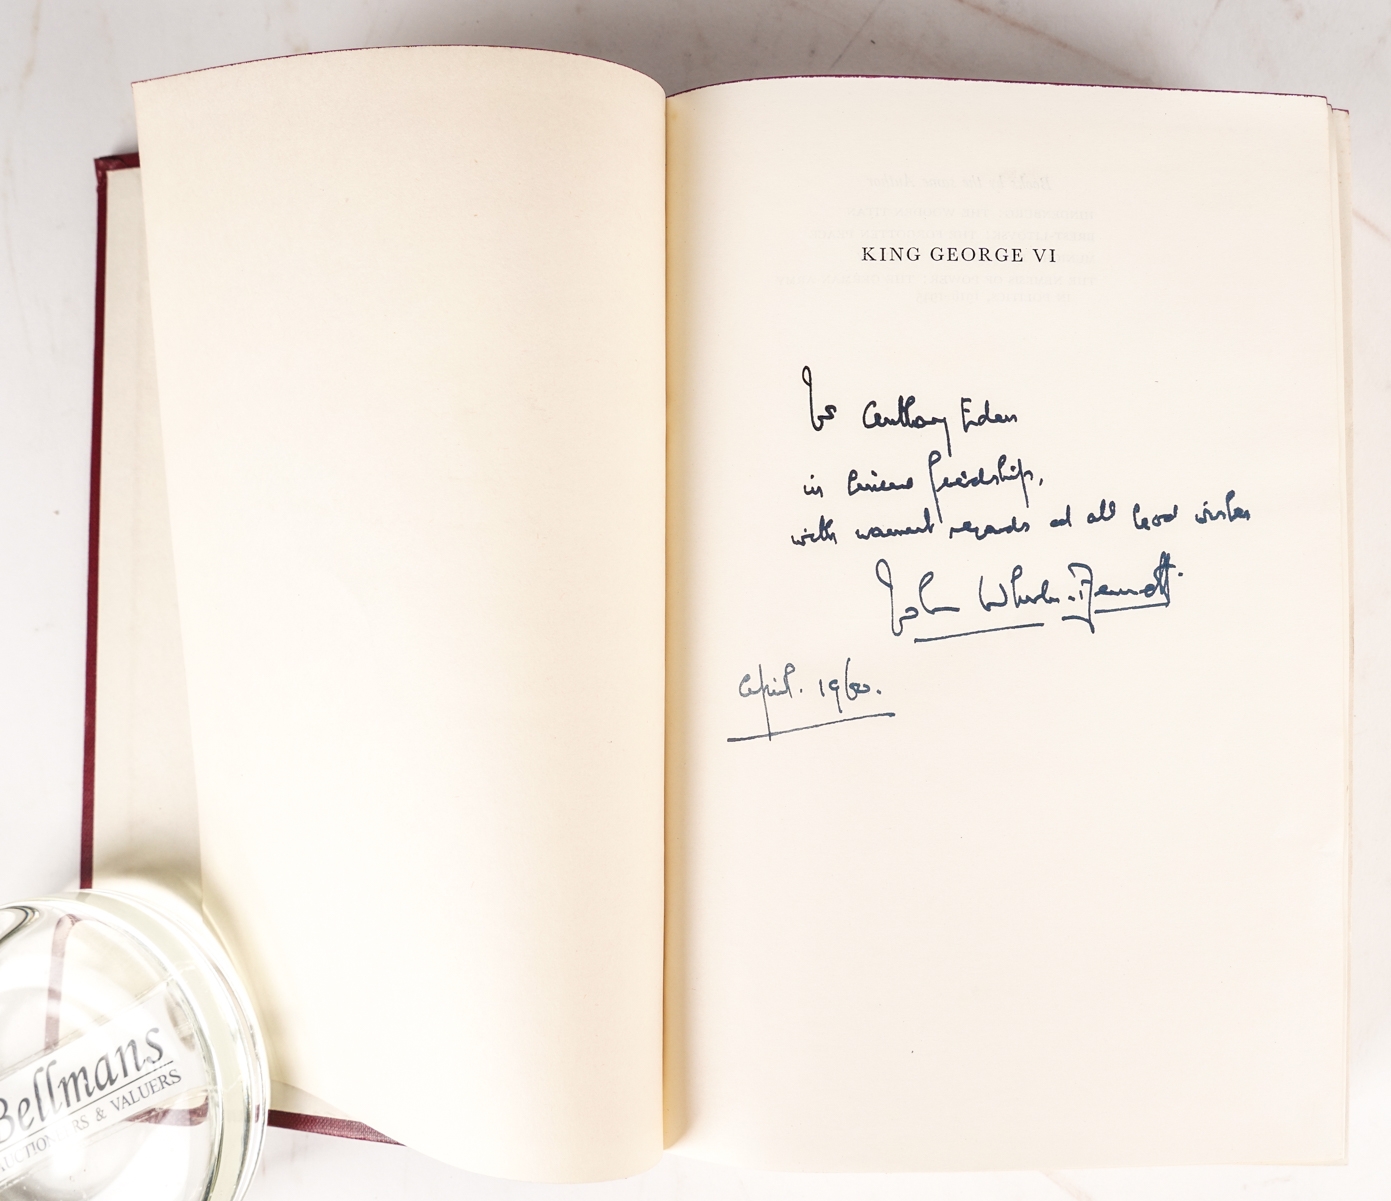 KING GEORGE VI
To Anthony Eden
in sincere friendship,
with warmest regards and all good wishes
John Wheeler-Bennett.
April. 1960.
Bellmans
AUCTIONEERS & VALUERS